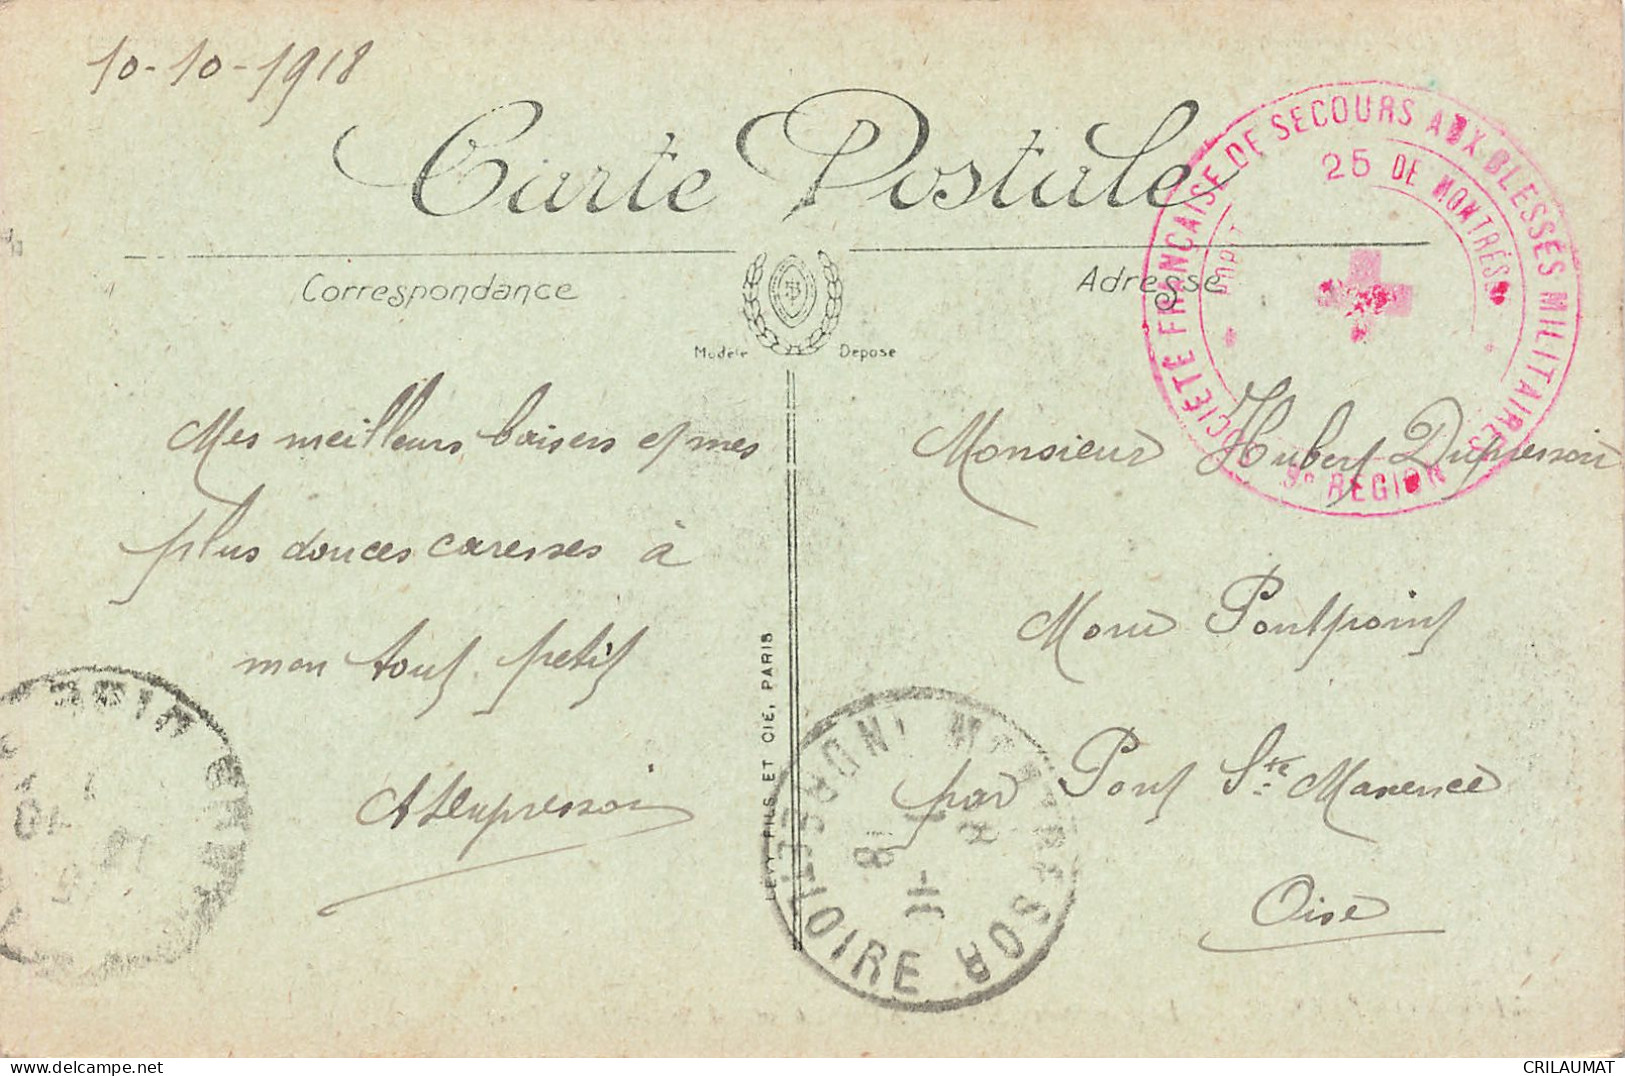 10-10-1918
Carte Postale
Correspondance
Adresse
Modèle Déposé
SOCIÉTÉ FRANÇAISE DE SECOURS AUX BLESSÉS MILITAIRES
25 DE MONTRÉSOR
9e REGION
Mes meilleurs baisers et mes
plus douces caresses à
mon tout petit
ADupressoir
LEVY FILS ET CIE, PARIS
Monsieur Hubert Dupressoir
Moru Pontpoint
par Pont Ste Maxence
Oise
MONTRESOR
INDRE-ET-LOIRE